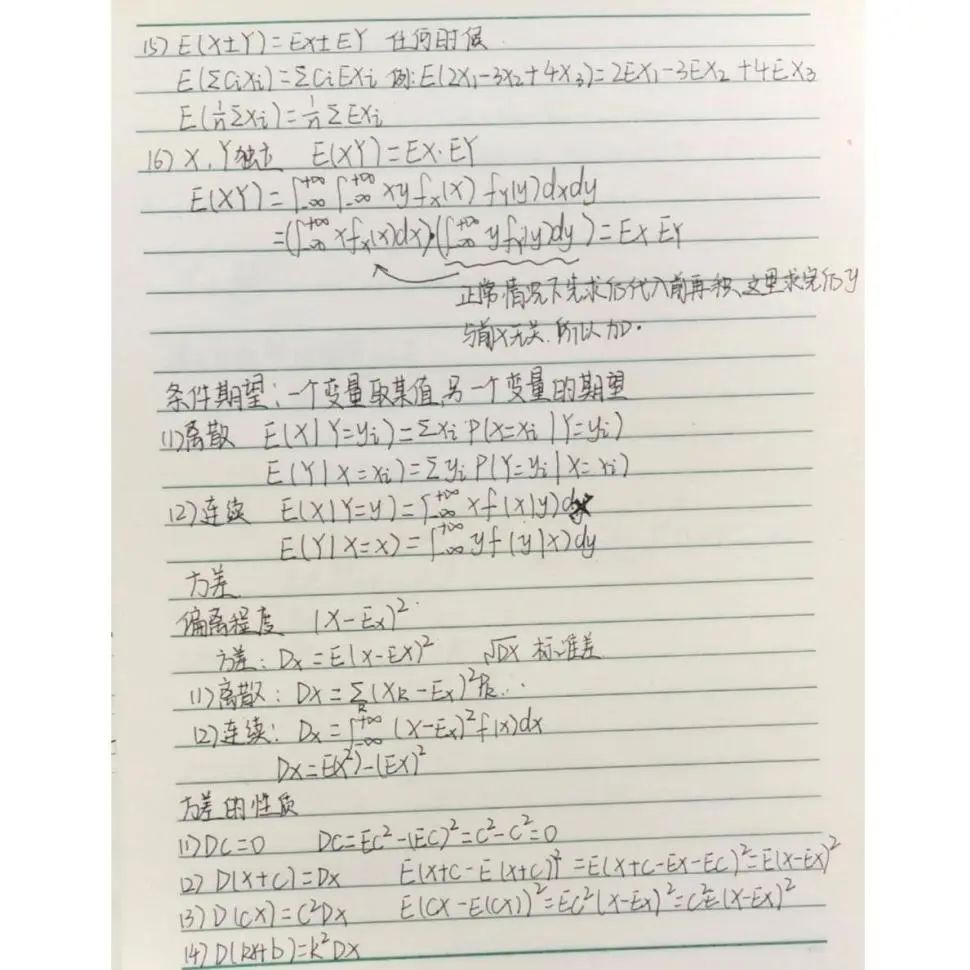 (5) E(X±Y)=EX±EY 任何时候
E(ΣCiXi)=ΣCiEXi 例:E(2X₁-3X₂+4X₃)=2EX₁-3EX₂+4EX₃
E(1/nΣXi)=1/nΣEXi
(6) X,Y独立 E(XY)=EX·EY
E(XY)=∫₋∞⁺∞∫₋∞⁺∞xyfₓ(x)fY(y)dxdy
=(∫₋∞⁺∞xfₓ(x)dx)·(∫₋∞⁺∞yfY(y)dy)=EX EY
正常情况下先求后代入前再积,这里求完后y
与前x无关.所以加·
条件期望:一个变量取某值,另一个变量的期望
(1)离散 E(X|Y=yi)=Σxi P(X=xi|Y=yi)
E(Y|X=xi)=Σyi P(Y=yi|X=xi)
(2)连续 E(X|Y=y)=∫₋∞⁺∞xf(x|y)dx
E(Y|X=x)=∫₋∞⁺∞yf(y|x)dy
方差
偏离程度 (X-EX)²
方差:DX=E(X-EX)² √DX 标准差
(1)离散:DX=Σₖ(Xₖ-EX)²Pₖ..
(2)连续:DX=∫₋∞⁺∞(X-EX)²f(x)dx
DX=E(X²)-(EX)²
方差的性质
(1)DC=0 DC=EC²-(EC)²=C²-C²=0
(2)D(X+C)=DX E(X+C-E(X+C))²=E(X+C-EX-EC)²=E(X-EX)²
(3)D(CX)=C²DX E(CX-E(CX))²=EC²(X-EX)²=C²E(X-EX)²
(4)D(kX+b)=k²DX